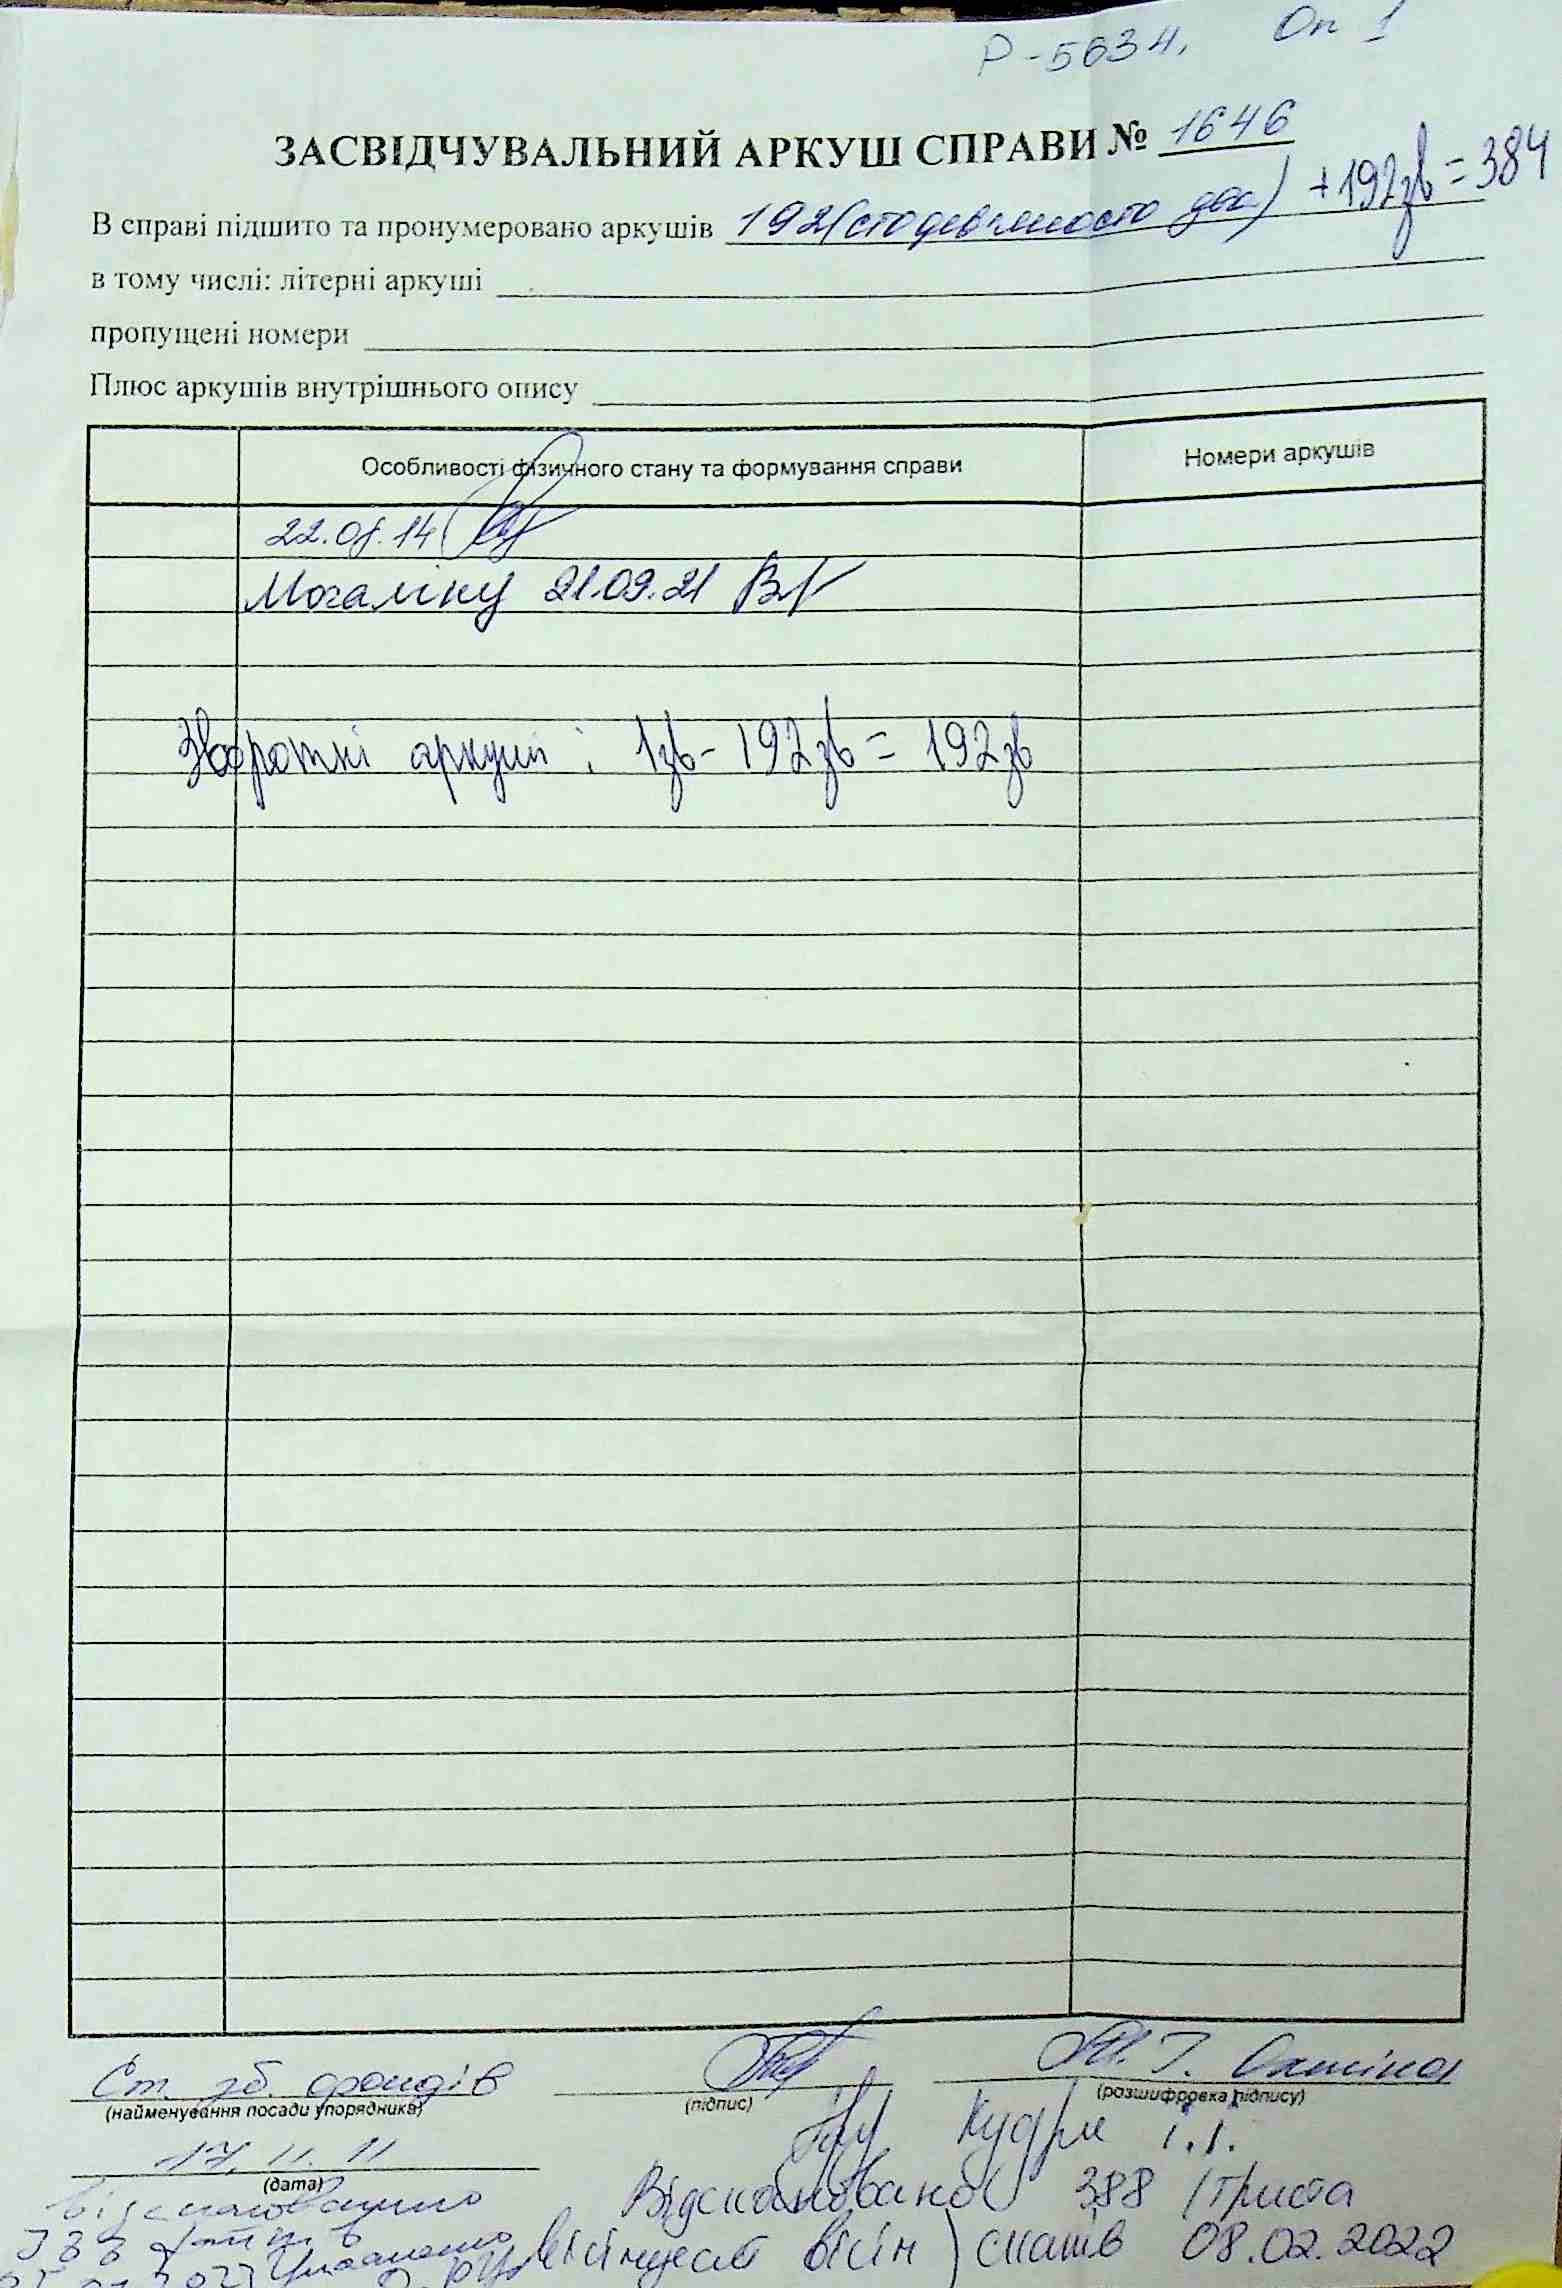 Р-5634, Оп 1
ЗАСВІДЧУВАЛЬНИЙ АРКУШ СПРАВИ № 1646
В справі підшито та пронумеровано аркушів 192 (сто дев'яносто два) + 192зв = 384
в тому числі: літерні аркуші
пропущені номери
Плюс аркушів внутрішнього опису
Особливості фізичного стану та формування справи Номери аркушів
22.08.14
21.09.21
Зворотні аркуші: 1зв - 192зв = 192зв
Ст. зб. фондів
(найменування посади упорядника) (підпис) (розшифровка підпису)
Кудря І.І.
17.11.11
(дата)
Відскановано 388 (триста
вісімдесят вісім) сканів 08.02.2022
відскановано
388